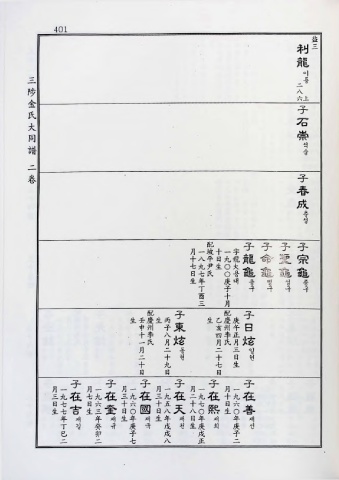 401
三陟金氏大同譜 二卷
益三
利龍 이룡 上二八六
子 石崇 석숭
子 春成 춘성
子 宗龜 종구
子 龜
子 命龜 명구
子 龍龜 용구
字龍大용대
一九○○庚子十月
十日生
配坡平尹氏
一八九七年丁酉三
月十七日生
子 日炫 일현
庚午正月三日生
配慶州李氏
乙亥四月二十七日
生
子 東炫 동현
丙子八月二十九日
生
配慶州李氏
壬申十一月二十日
生
子 在善 재선
一九六○年庚子二
月十日生
子 在熙 재희
一九七○年庚戌正
月二十八日生
子 在天 재천
一九五八年戊戌八
月三十日生
子 在國 재국
一九六○年庚子七
月三十日生
子 在奎 재규
一九六三年癸卯二
月七日生
子 在吉 재길
一九七七年丁巳二
月三日生